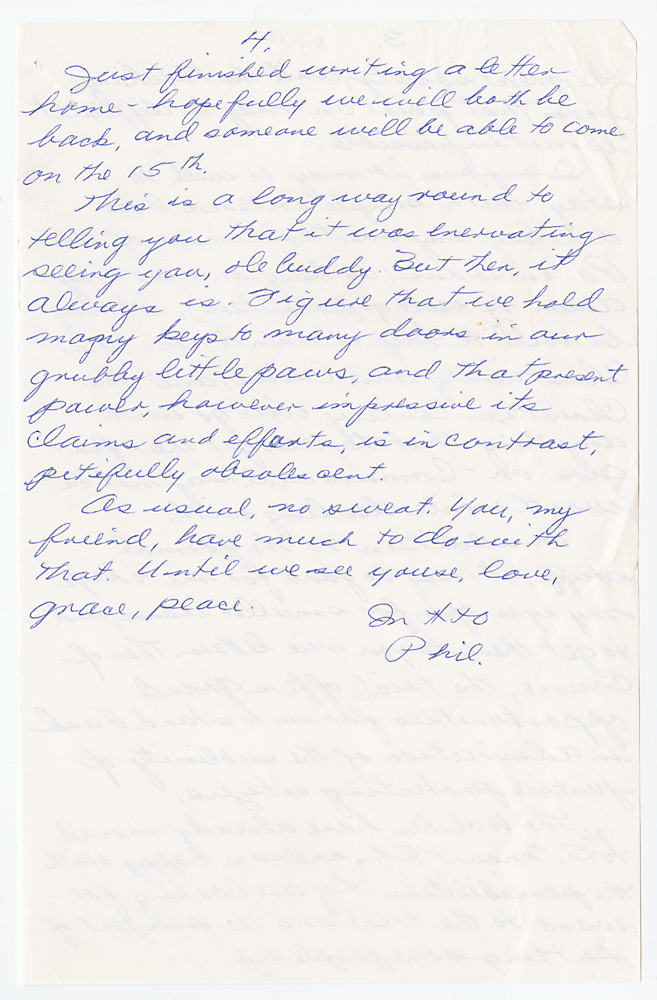 4.
Just finished writing a letter
home - hopefully we will both be
back, and someone will be able to come
on the 15th.
This is a long way round to
telling you that it was enervating
seeing you, ole buddy. But then, it
always is. Figure that we hold
magny keys to many doors in our
grubby little paws, and that present
power, however impressive its
claims and efforts, is in contrast,
pitifully obsolescent.
As usual, no sweat. You, my
friend, have much to do with
that. Until we see youse, love,
grace, peace.
In
Phil.